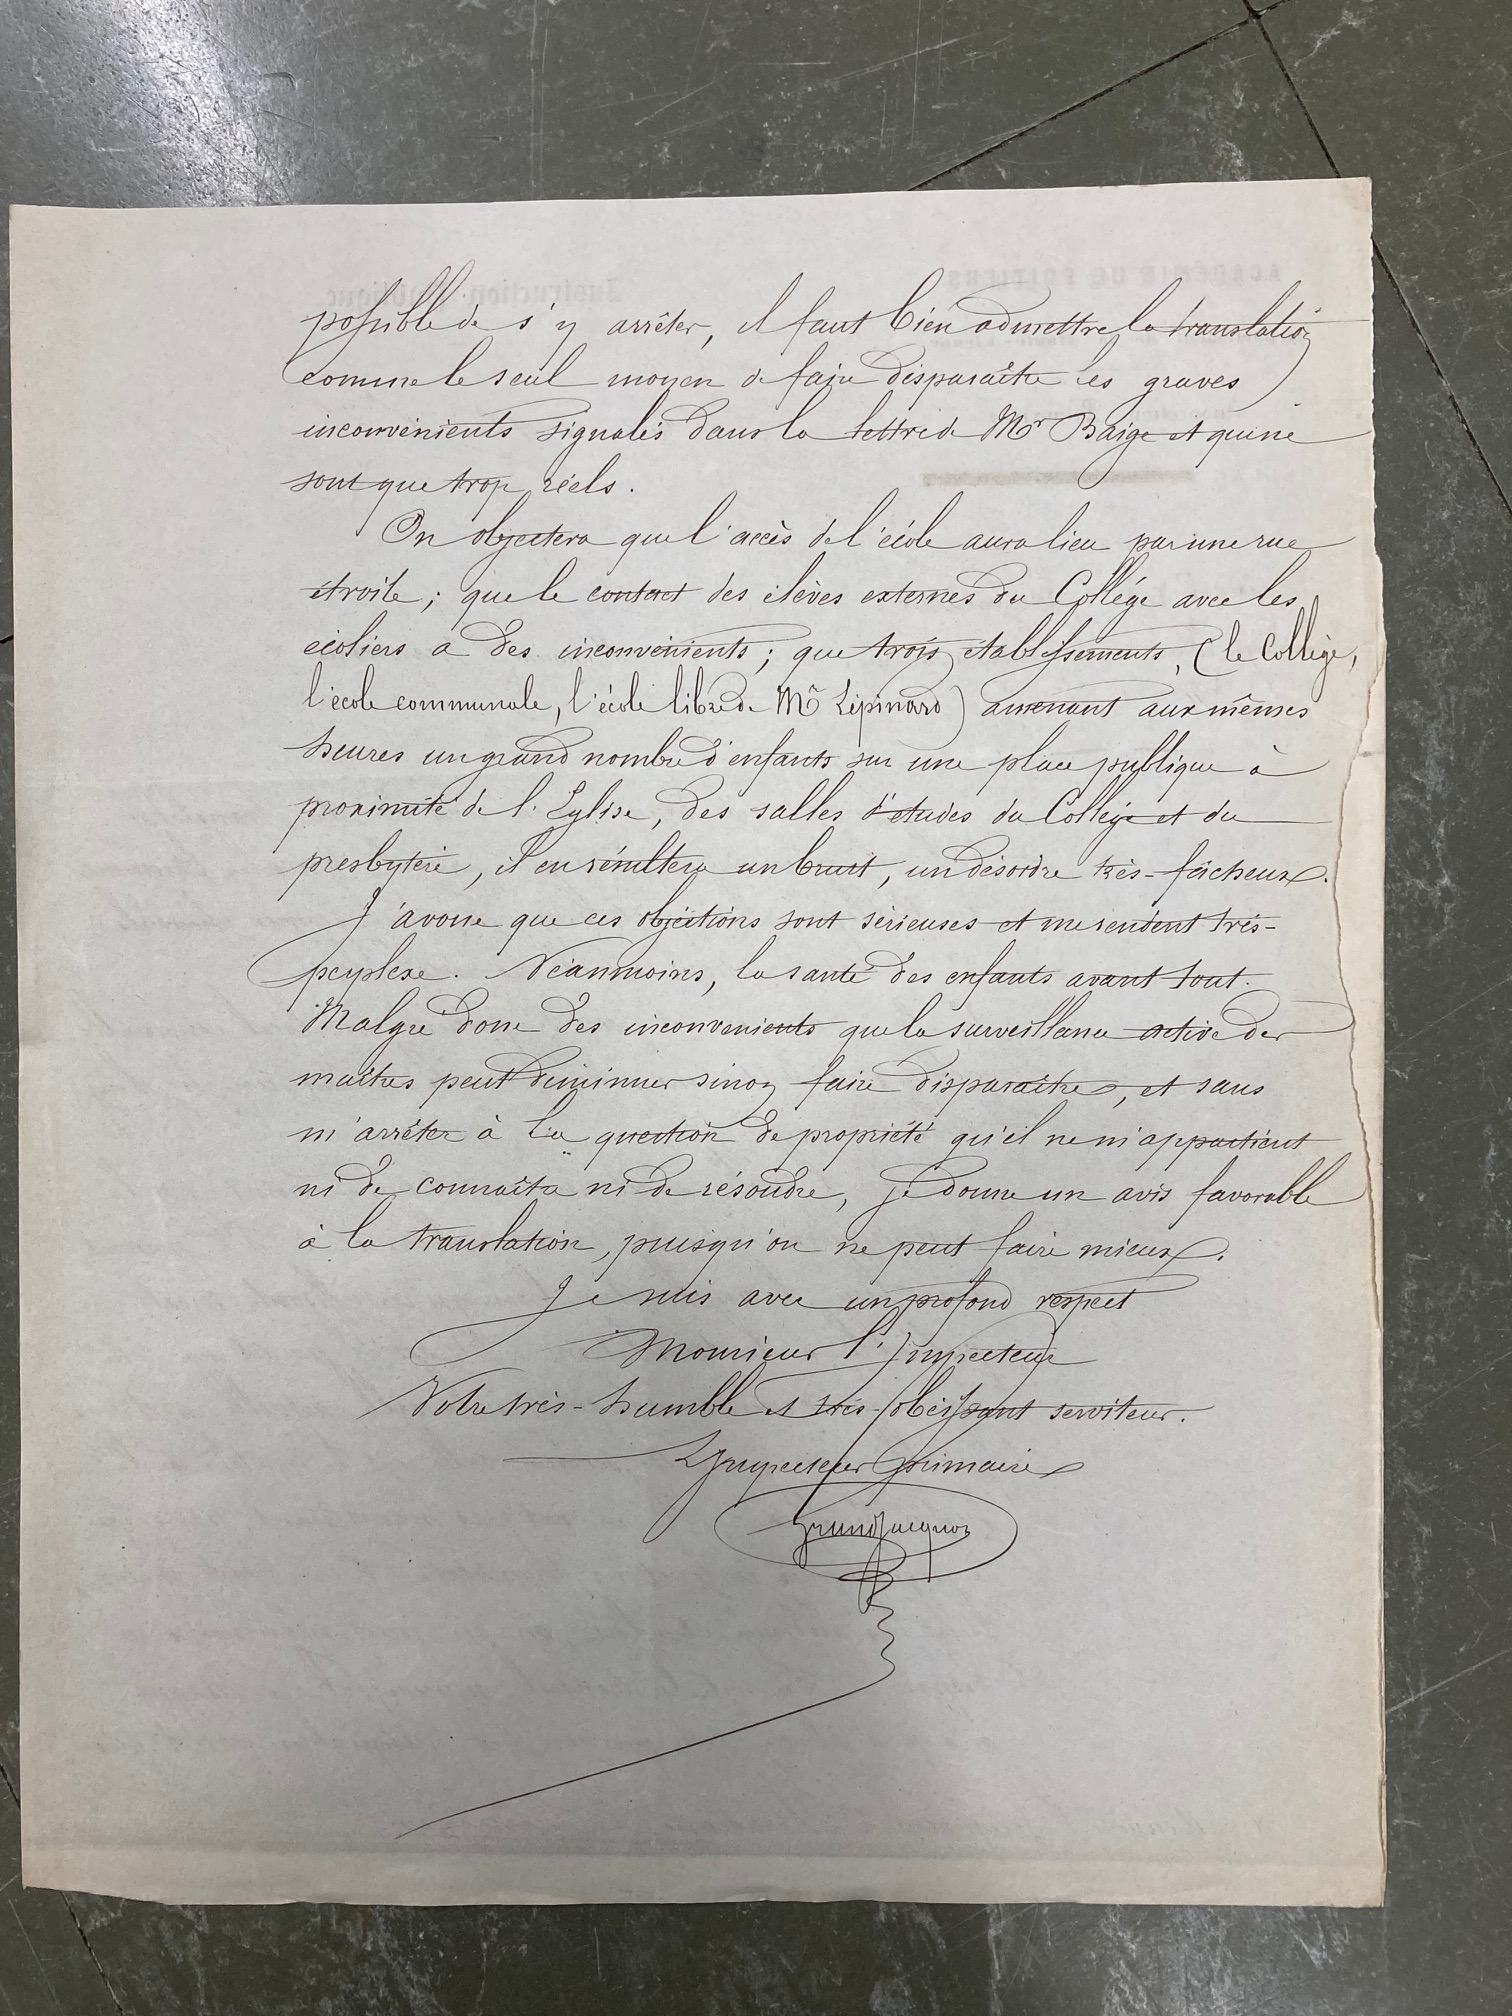 possible de s'y arrêter, il faut bien admettre la translation
comme le seul moyen de faire disparaître les graves
inconvénients signalés dans la lettre de Mr Baige et qui ne
sont que trop réels.
On objectera que l'accès de l'école aura lieu par une rue
étroite ; que le contact des élèves externes du Collége avec les
écoliers a des inconvénients ; que trois établissements, (le Collège,
l'école communale, l'école libre de Mr Lépinard) amenant aux mêmes
heures un grand nombre d'enfants sur une place publique à
proximité de l'Eglise, des salles d'études du Collége et du
presbytère, il en résultera un bruit, un désordre très-fâcheux.
J'avoue que ces objections sont sérieuses et me rendent très-
perplexe. Néanmoins, la santé des enfants avant tout.
Malgré donc des inconvénients que la surveillance active des
maîtres peut diminuer sinon faire disparaître, et sans
m'arrêter à la question de propriété qu'il ne m'appartient
ni de connaître ni de résoudre, je donne un avis favorable
à la translation, puisqu'on ne peut faire mieux.
Je suis avec un profond respect
Monsieur l'Inspecteur
Votre très-humble et très-obéissant serviteur.
L'Inspecteur Primaire
Grandjacquot
ACADÉMIE DE POITIERS
Instruction Publique